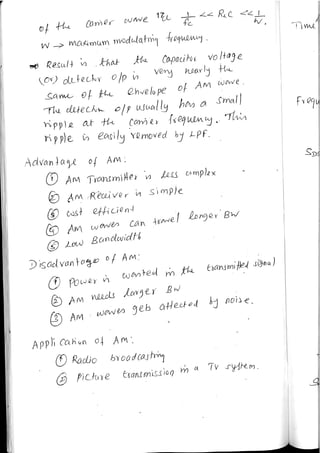 of the carrier wave ie 1/fc << RlC << 1/W.
W → maximum modulating frequency.
→ Result is that the capacitor voltage
(or) detector o/p is very nearly the
same of the envelope of AM wave.
The detector o/p usually has a small
ripple at the carrier frequency. This
ripple is easily removed by LPF.
Advantage of AM:
① AM Transmitter is less complex
② AM Receiver is simple
③ cost efficient
④ AM waves can travel longer BW
⑤ Low Bandwidth
Disadvantage of AM:
① power is wasted in the transmitted signal
② AM needs larger BW
③ AM waves gets affected by noise.
Application of AM:
① Radio broadcasting
② Picture transmission in a TV system.
Time
Frequ